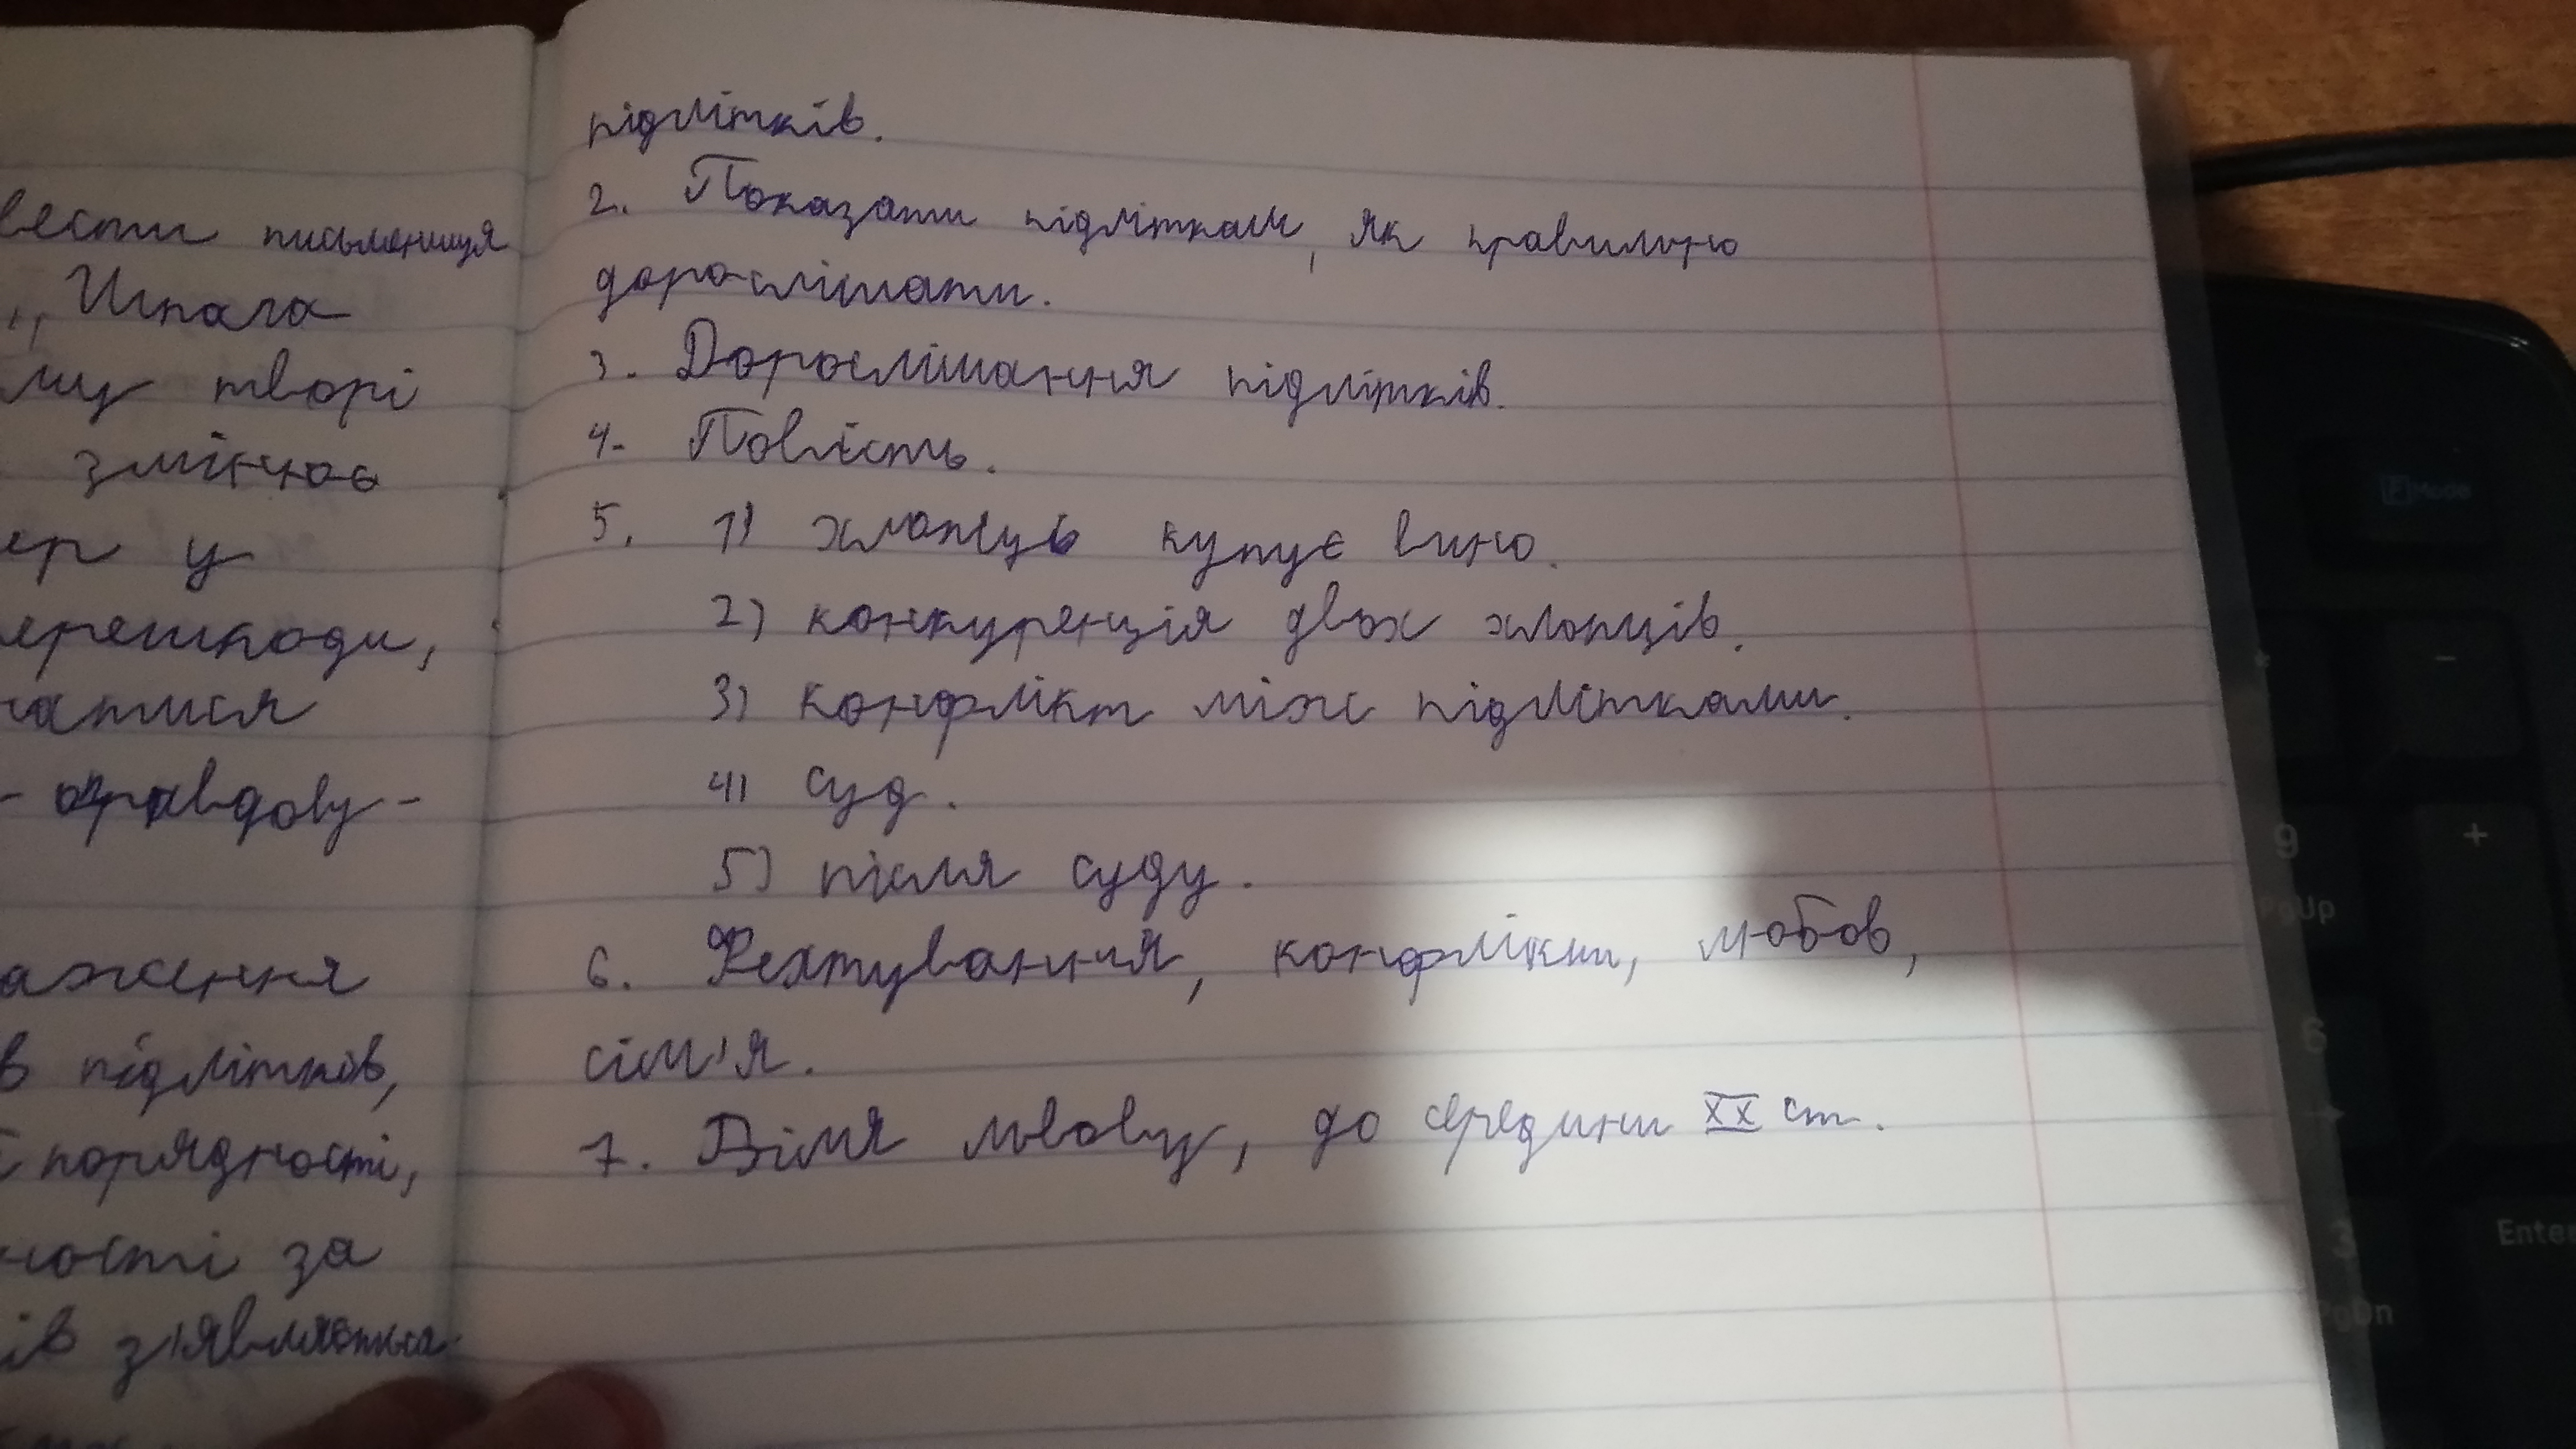 вести письменниця
„Шпага
му творі
змінює
ер у
ерешкоди,
атися
- оправдову-
аження
в підлітків,
порядності,
ності за
ів з'являється
підлітків.
2. Показати підліткам, як правильно
дорослішати.
3. Дорослішання підлітків.
4. Повість.
5. 1) хлопець купує вино.
2) конкуренція двох хлопців.
3) конфлікт між підлітками.
4) суд.
5) після суду.
6. Фехтування, конфлікти, любов,
сім'я.
7. Біля львову, до середини XX ст.
Mode
-
9
PgUp
+
6
3
PgDn
Enter